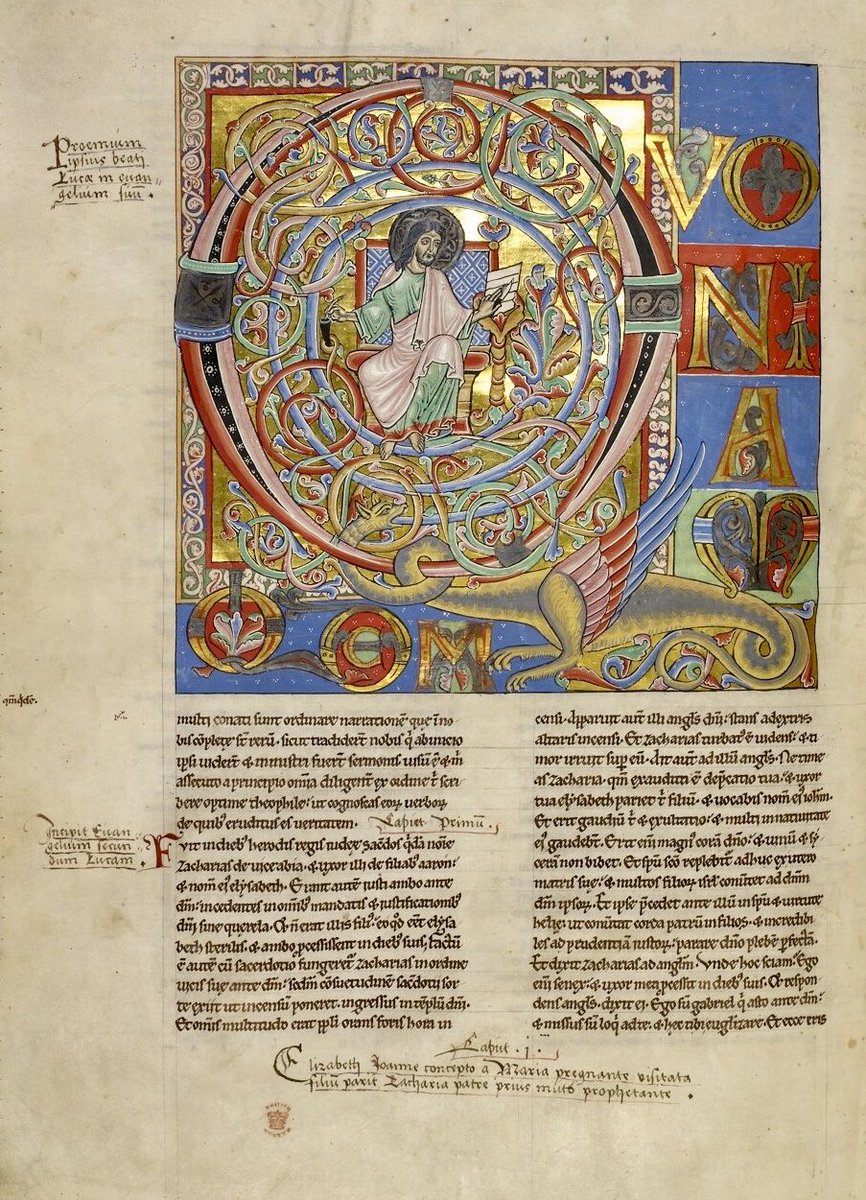 Proemium
ipsius beati
Lucæ in euan
gelium suũ.
QVO
NI
A
M
QVIDEM
multi conati sunt ordinare narrationẽ que ĩ no
bis cõplete st̃ rerũ. sicut tradider̃t nobis q̃ abinicio
ipsi uider̃t & ministri fuer̃t sermonis. uisũ ẽ & m̃
assecuto a principio om̃ia diligent̃ ex ordine t̃ scri
bere optime theophile. ut cognoscas eoꝝ uerboꝝ
de quibꝰ eruditus es ueritatem. Caput Primũ.
Incipit Euan
gelium secun
dum Lucam.
Fvit in diebꝰ herodis regis iudeę sac̃dos q̃dã nõie
Zacharias de uice abia. & uxor illi de filiabꝰ aaron.
& nom̃ eiꝰ elysabeth. Erant aut̃ iusti ambo ante
dm̃. incedentes in om̃ibꝰ mandatis & iustificationibꝰ
dñi sine querela. Et ñ erat illis filiꝰ. eo qđ eẽt elysa
beth sterilis. & ambo p̃cessissent in diebꝰ suis. Factũ
ẽ aut̃ cũ sacerdotio fungeret̃ Zacharias in ordine
uicis suę ante dm̃. scđm cõsuetudinẽ sacđotii sor
te exiit ut incensũ poneret. ingressus in tẽplũ dñi.
Et om̃is multitudo erat ppl̃i orans foris hora in
censi. Apparuit aut̃ illi angl̃s dñi. stans adextris
altaris incensi. Et Zacharias turbatꝰ ẽ uidens. & ti
mor irruit sup̃ eũ. Ait aut̃ ad illũ angl̃s. Ne time
as Zacharia. qm̃ exaudita ẽ dep̃catio tua. & uxor
tua elysabeth pariet t̃ filiũ. & uocabis nom̃ eiꝰ ioh̃m.
Et erit gaudiũ t̃ & exultatio. & multi in natiuitate
eiꝰ gaudebt̃. Erit em̃ magnꝰ corã dño. & uinũ & si
cerã non bibet. Et spũ sc̃o replebit̃ adhuc ex utero
matris suę. & multos filioꝝ isrl̃ cõuertet ad dñm
dm̃ ipsoꝝ. Et ipse p̃cedet ante illũ in spũ & uirtute
helię. ut cõuertat corda patrũ in filios. & incredibi
les ad prudentiã iustoꝝ. parare dño plebẽ p̃fectã.
Et dixit Zacharias ad angl̃m. Vnde hoc sciam? Ego
em̃ senex. & uxor mea p̃cessit in diebꝰ suis. Et respon
dens angl̃s. dixit ei. Ego sũ gabriel q̃ asto ante dm̃.
& missus sũ loq̃ ad te. & hec tibi euãglizare. Et ecce eris
Caput .i.
Elizabeth Joanne concepto a Maria pregnante visitata
filiũ parit. Zacharia patre prius muto prophetante.